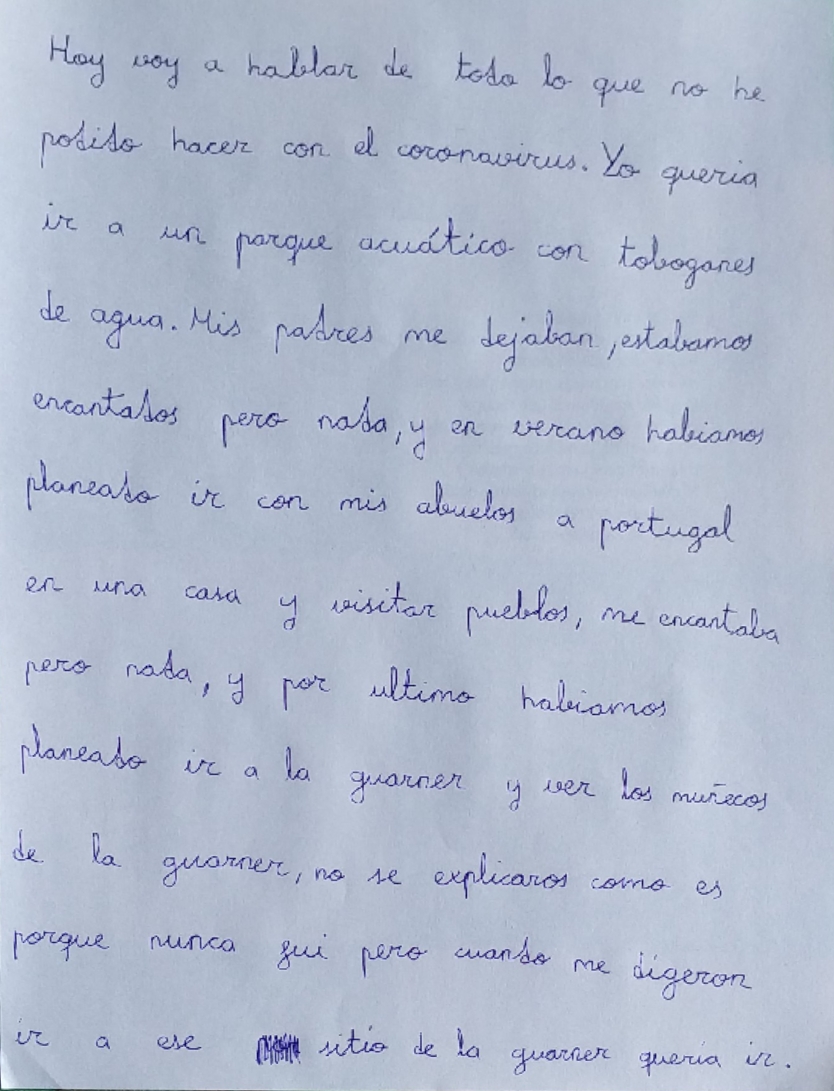 Hoy voy a hablar de todo lo que no he
podido hacer con el coronavirus. Yo queria
ir a un parque acuático con toboganes
de agua. Mis padres me dejaban, estabamos
encantados pero nada, y en verano habiamos
planeado ir con mis abuelos a portugal
en una casa y visitar pueblos, me encantaba
pero nada, y por ultimo habiamos
planeado ir a la guarner y ver los muñecos
de la guarner, no se explicaros como es
porque nunca fui pero cuando me digeron
ir a ese sitio de la guarner queria ir.